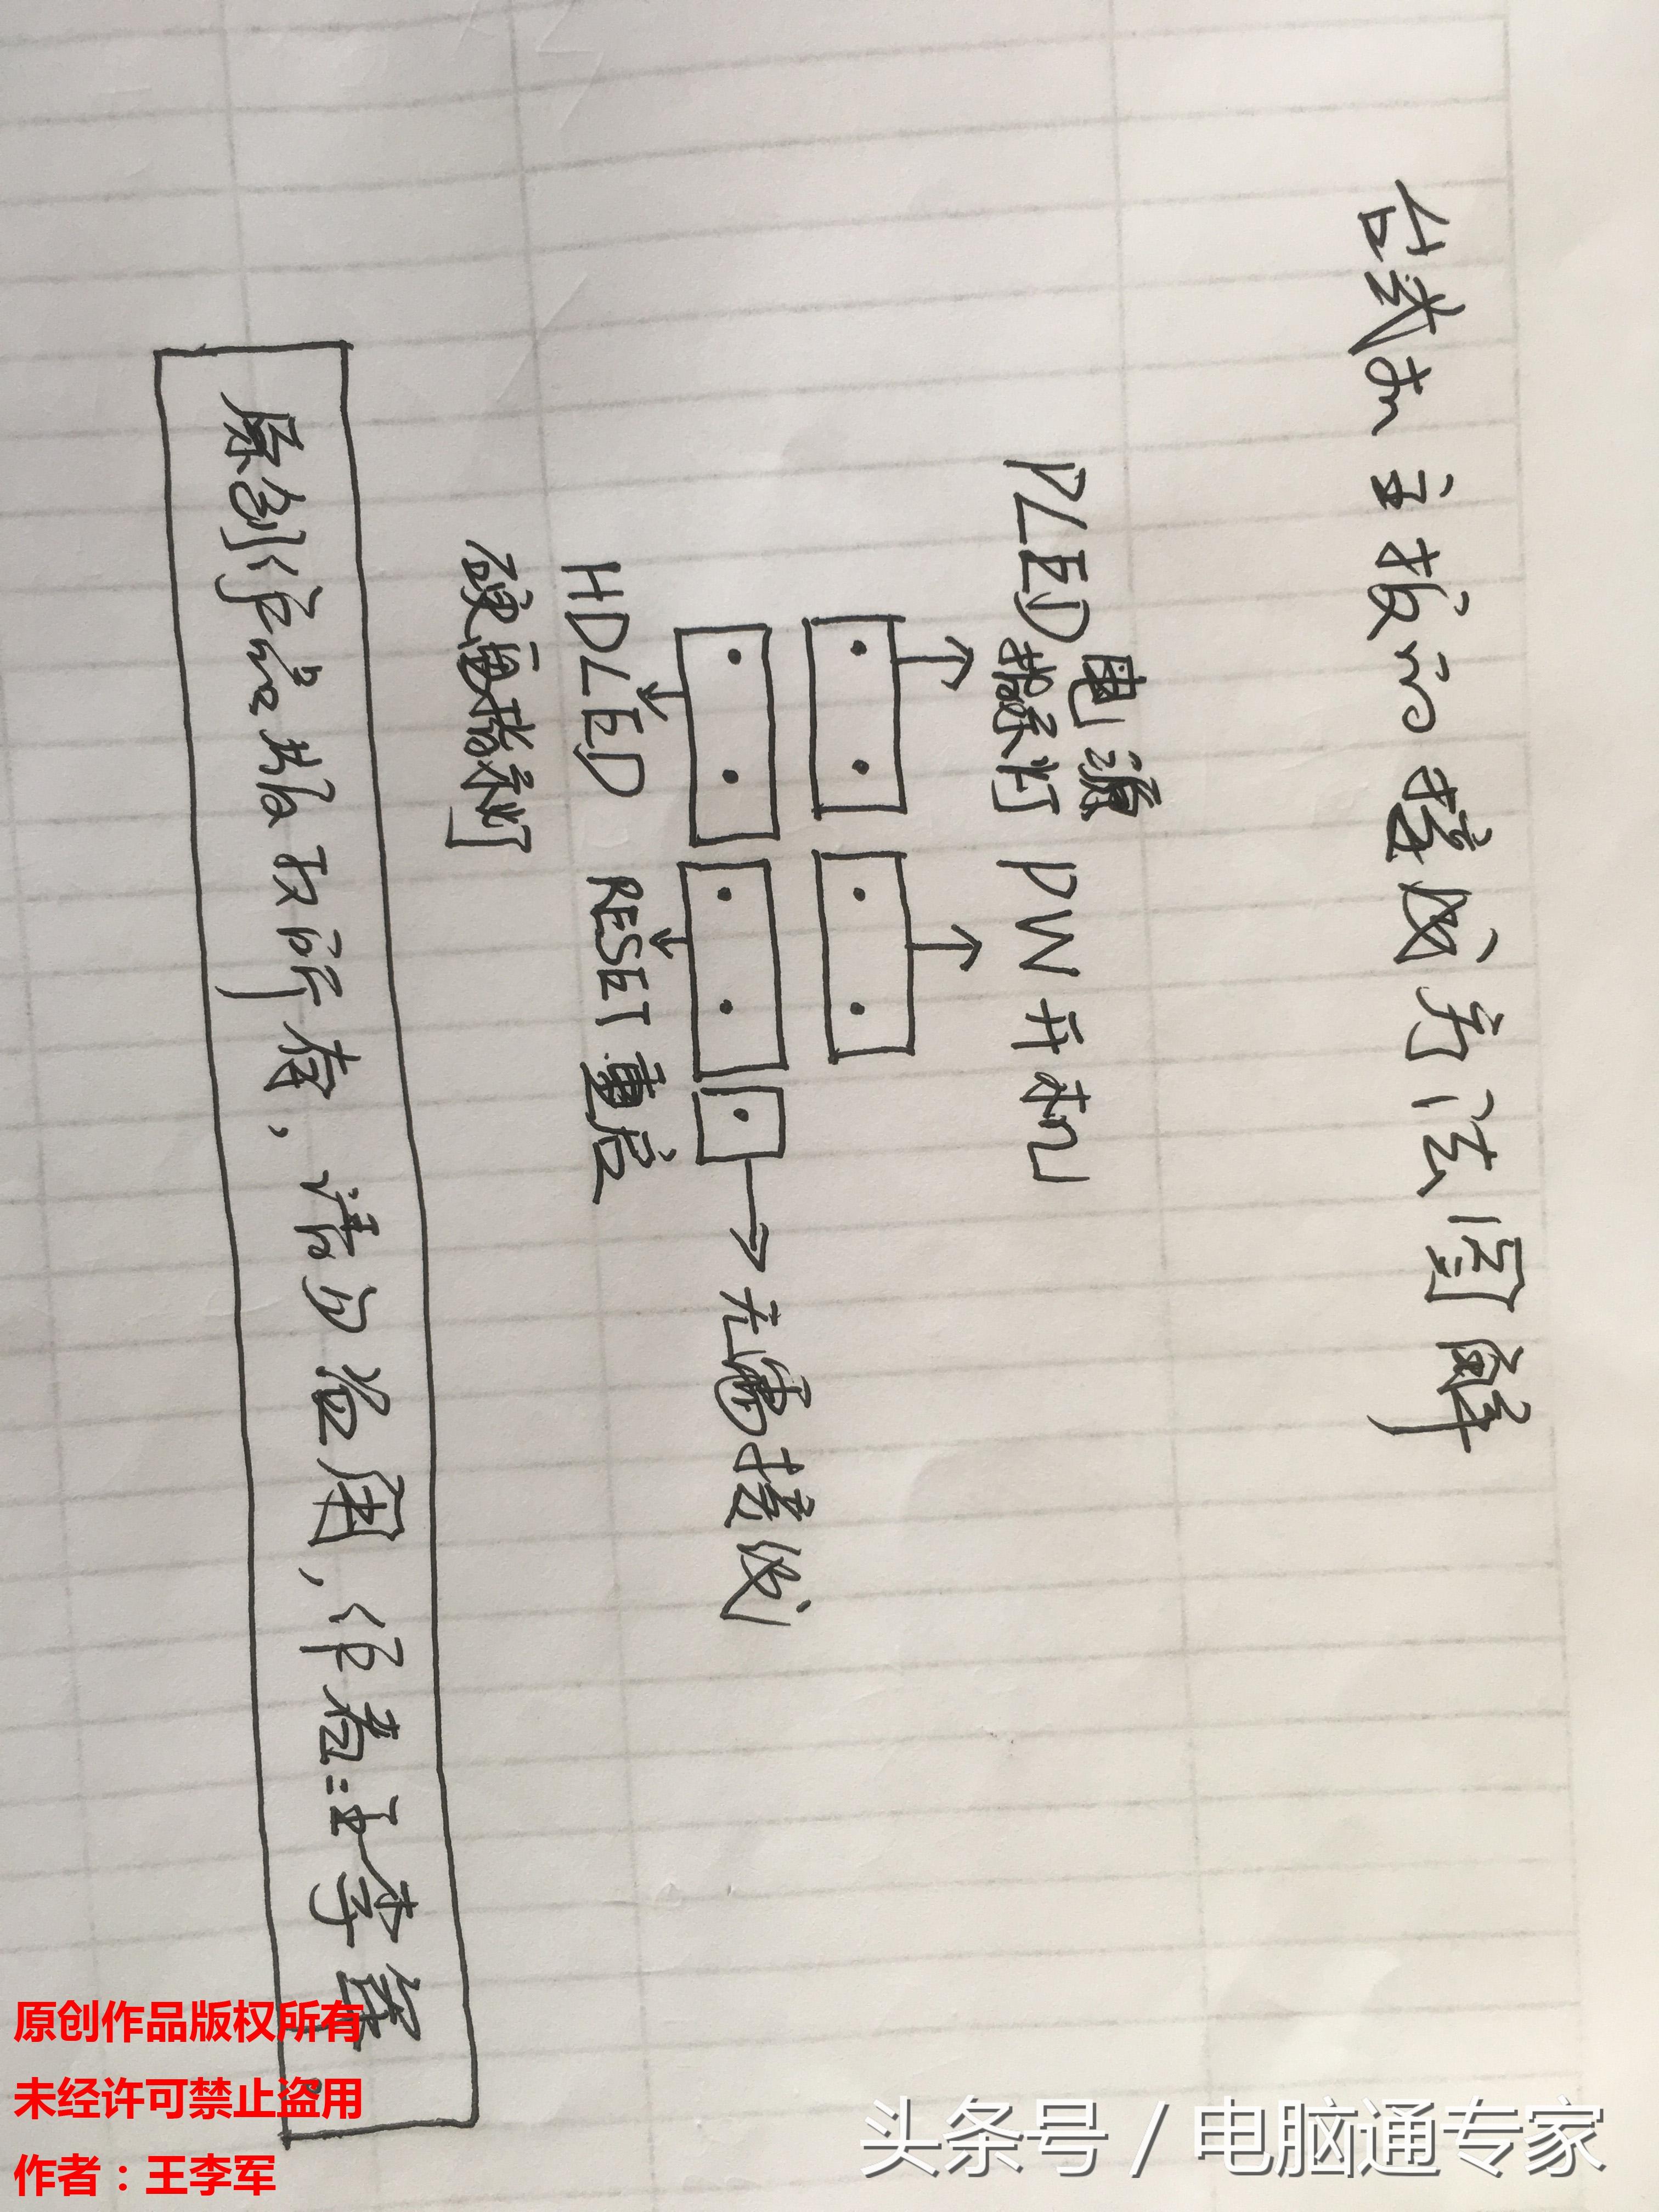 台式机主板的接线方法图解
PLED电源
指示灯
PW开机
无需接线
HDLED
硬盘指示灯
RESET重启
原创作品版权所有,请勿盗用,作者:王李军.
原创作品版权所有
未经许可禁止盗用
作者：王李军
头条号 / 电脑通专家